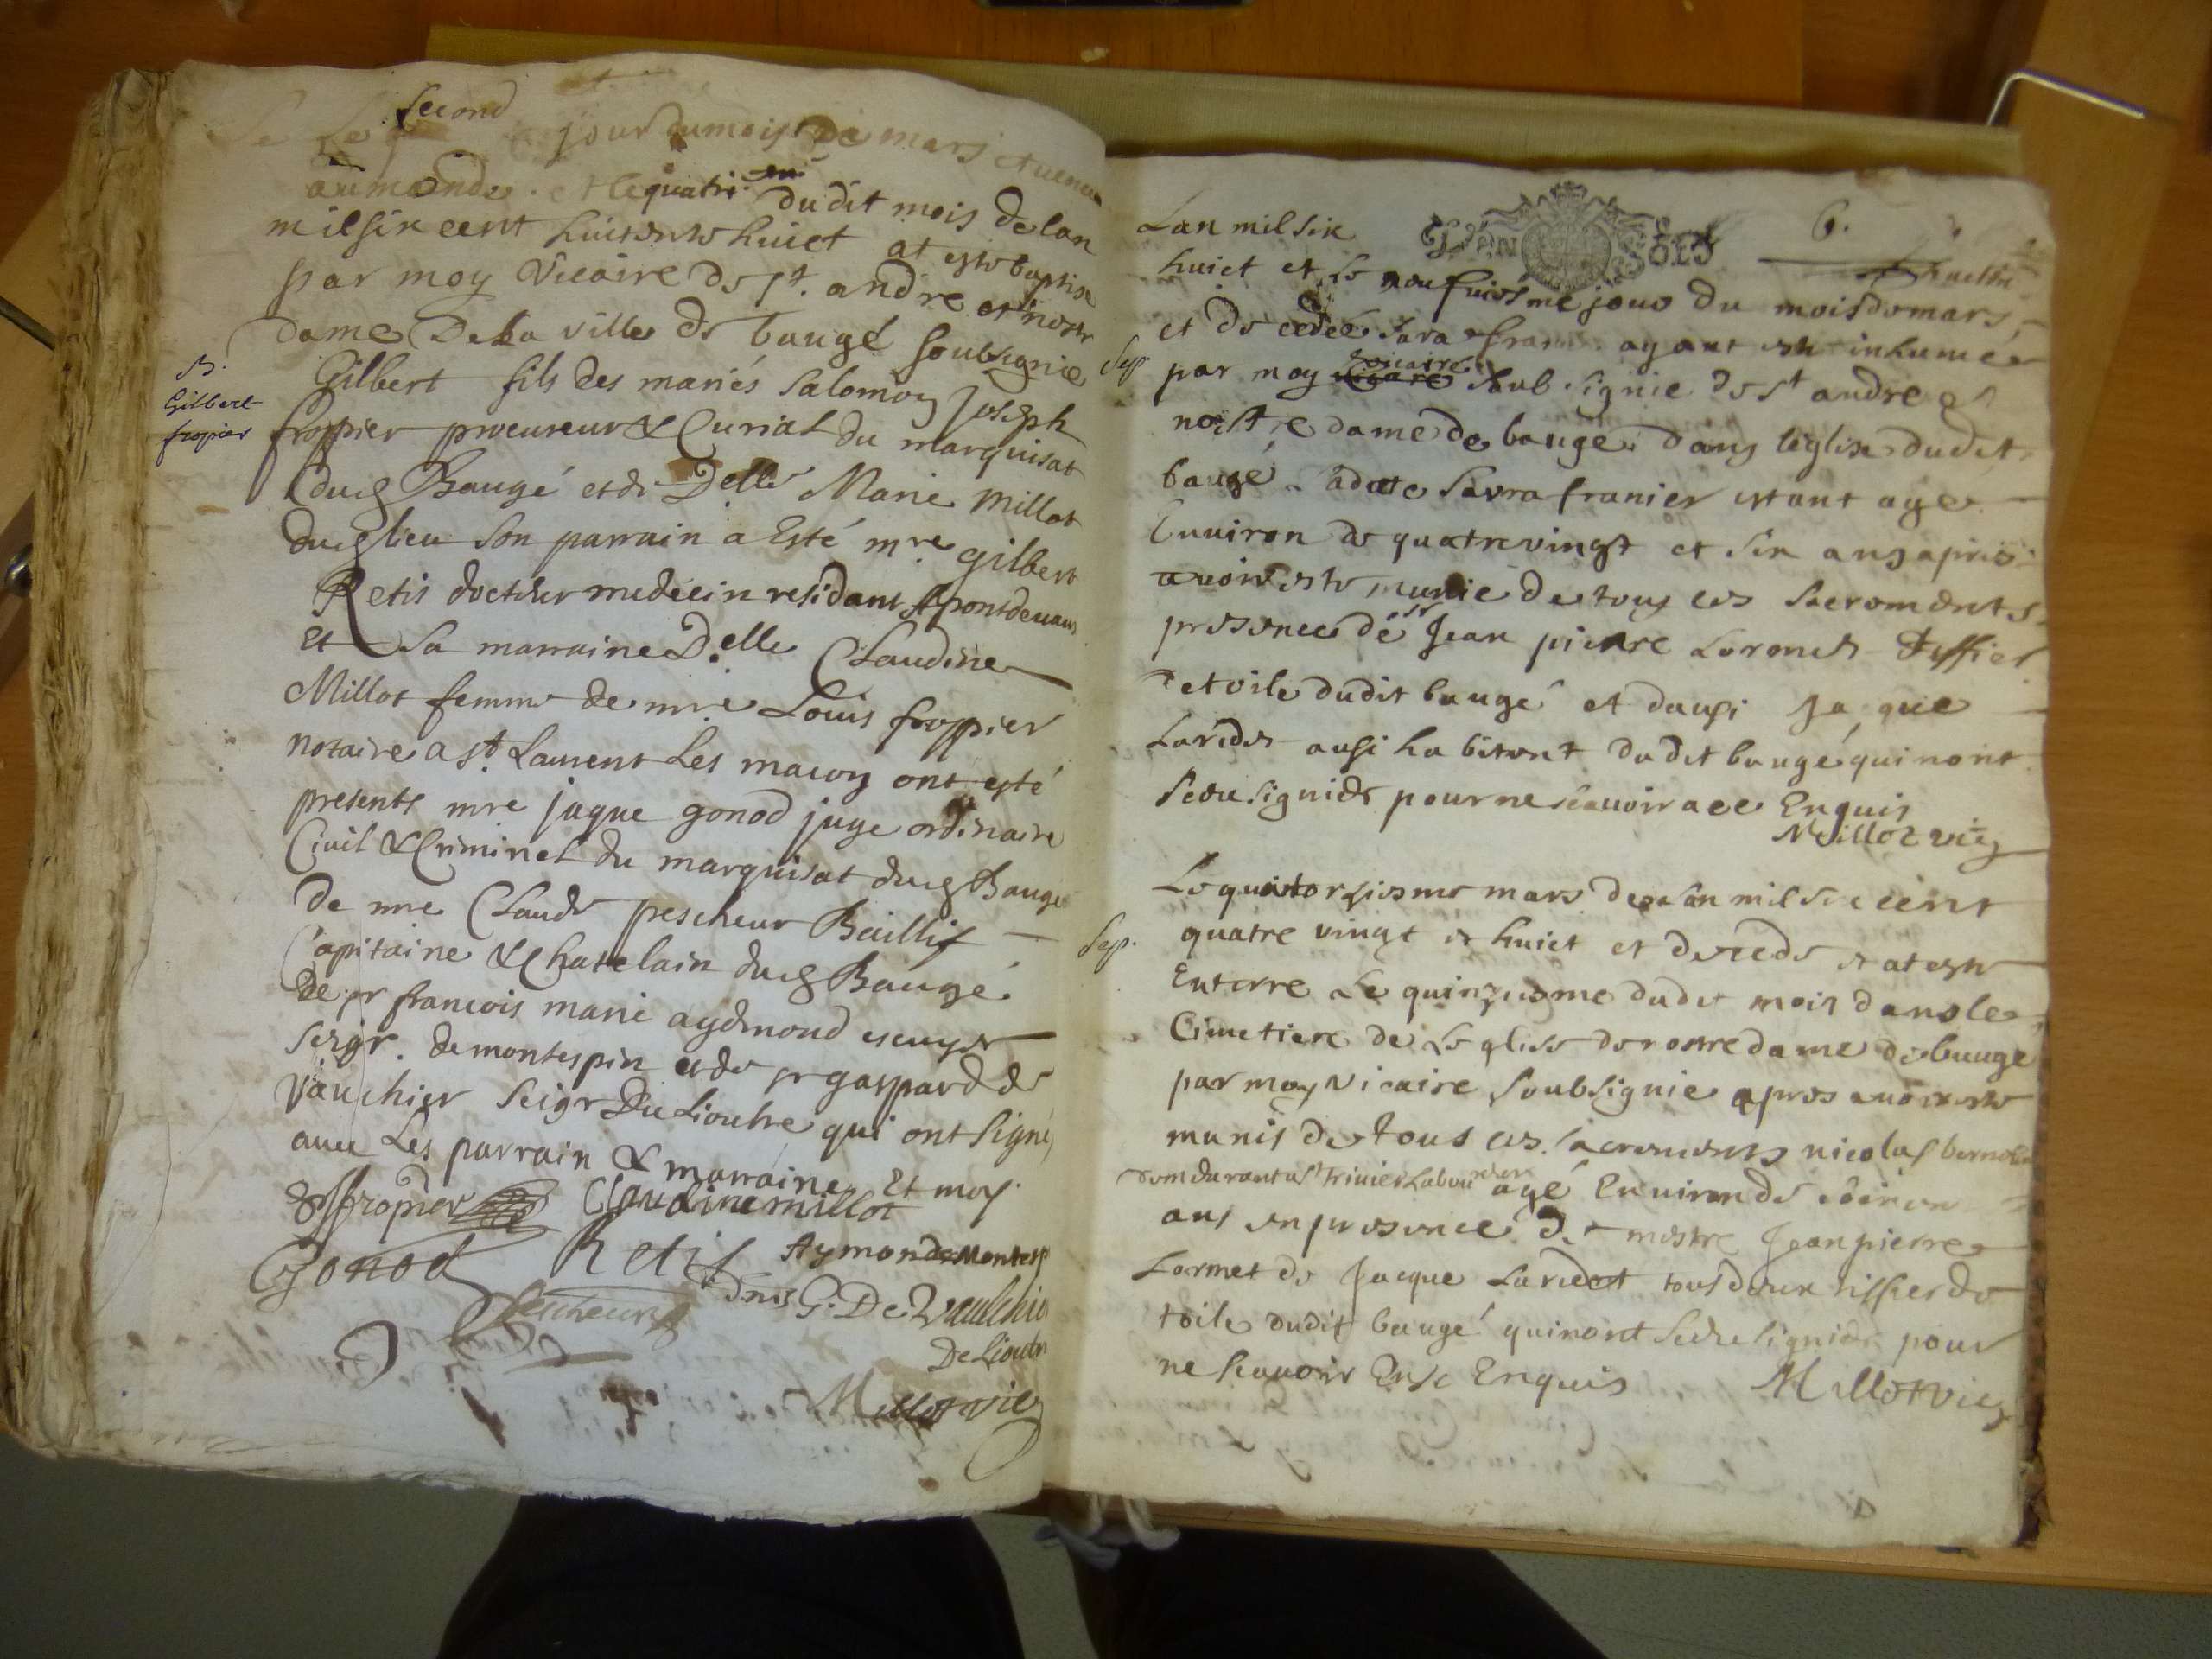 second
Le jour du mois de mars et venu
au monde. et le quatri. em dudit mois de lan
mil six cent huitente huict at este baptise
par moy Vicaire de st. andre et nostr
dame De La ville de baugé soubsignie
B.
Gilbert
fropier
Gilbert fils des mariés Salomon Joseph
froppier procureur & Curial du marquisat
dud Baugé et de Delle Marie Millot
dud lieu Son parrain a Esté mre Gilbert
Retis docteur medecin residant A pontdevaux
Et Sa marraine D.elle Claudine
Millot femme de mre Louis froppier
notaire a st. Laurent Les macon ont esté
presents mre jaque gonod juge ordinaire
Civil & Criminel du marquisat dud Baugé
de mre Claude pescheur Baillif
Capitaine & Chatelain dud Baugé
De sr francois marie aydmond escuyer
Seigr. de montespin et de sr gaspard de
Vauchier Seigr Du Lioutre qui ont Signé
avec Les parrain & marraine Et moy.
fropier Claudine millot
Gonod Retis Aymon de Montesp
Pescheur G. De Vaulchie
De Lioutr
Millot vic
Lan mil six 6.
huict et le neufuiesme jour du mois de mars
et decedée Sara ayant este inhumée
Sep.
par moy vicaire soub signie de st andre et
nostre dame de bauge dans leglise dudit
baugé ladite Savra franier estant age
Environ de quatre vingt et six ans apres
avoir este munie de tous ces sacrements
presence de sr Jean pierre Lormet tissier
de toile dudit baugé et dausi Jaque
Laridet ausi habitant dudit baugé qui nont
sceu signier pour ne scavoir a ce Enquis
Millot vic
Le quatorziesme mars de lan mil six cent
Sep.
quatre vingt et huict et decede et at este
Enterre Le quinziesme dudit mois dans le
Cimetiere de Leglise de nostre dame de bauge
par moy vicaire soubsignie apres avoir este
munis de tous ces sacrements nicolas
st trivier Laboureur agé Environ de
ans en presence de mestre Jean pierre
Lormet de Jacque Laridet tous deux tissier de
toile dudit baugé qui nont sceu signier pour
ne scavoir Enquis Millot vic